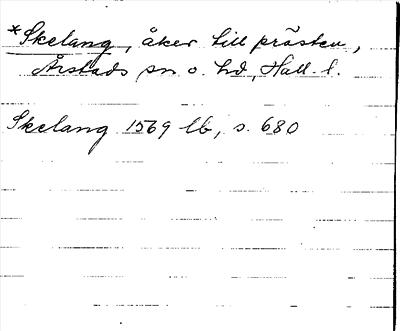 *Skelang, åker till prästen,
Årstads sn o. hd, Hall. l.
Skelang 1569 lb, s. 680